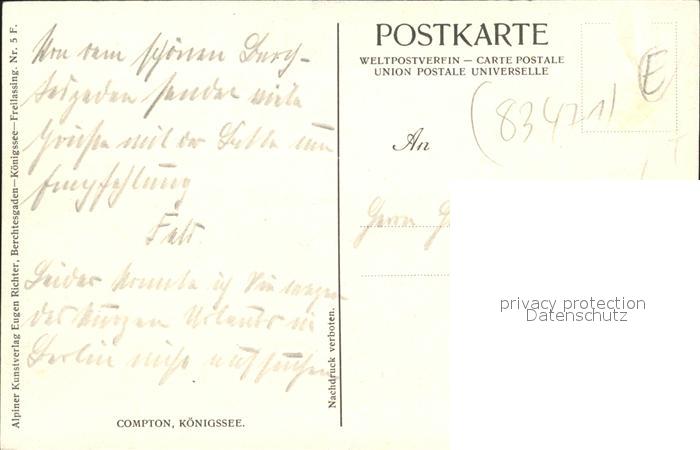 Alpiner Kunstverlag Eugen Richter, Berchtesgaden—Königssee—Freilassing. Nr. 5 F.
Von dem schönen Berch-
tesgaden sendet viele
Grüße mit der Bitte um
Empfehlung
Leider konnte ich Sie wegen
des kurzen Urlaubs in
Berlin nicht aufsuchen
COMPTON, KÖNIGSSEE.
Nachdruck verboten.
POSTKARTE
WELTPOSTVEREIN — CARTE POSTALE
UNION POSTALE UNIVERSELLE
E
(83471)
An
Herrn G
privacy protection
Datenschutz